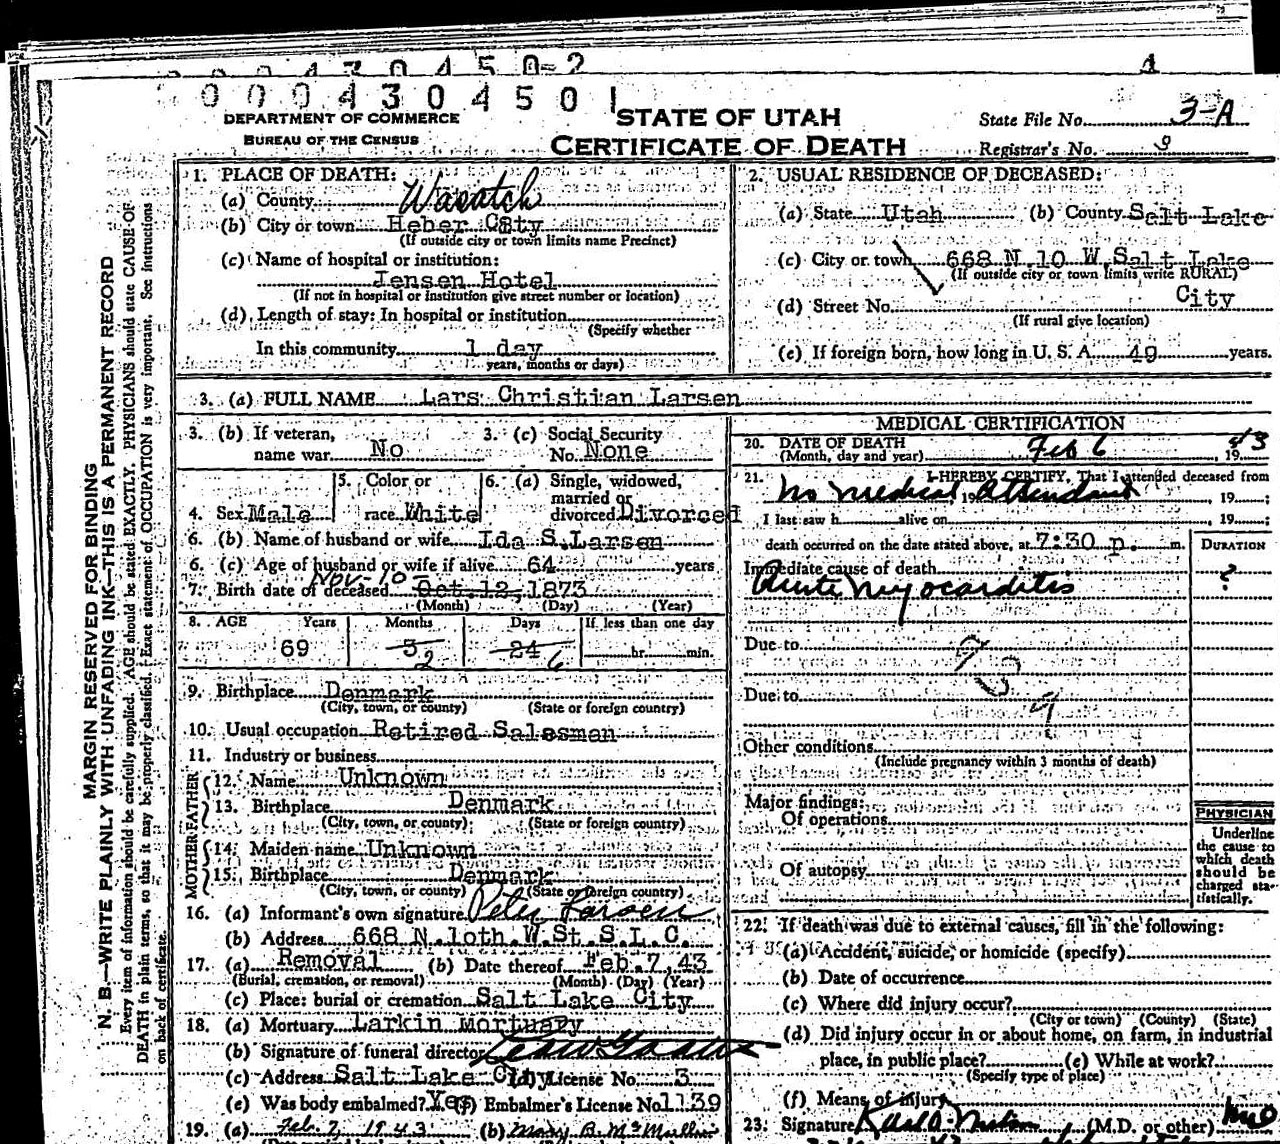 000430450-2
4
0004304501
DEPARTMENT OF COMMERCE
BUREAU OF THE CENSUS
STATE OF UTAH
CERTIFICATE OF DEATH
State File No. 3-A
Registrar's No. 9
MARGIN RESERVED FOR BINDING
N. B.—WRITE PLAINLY WITH UNFADING INK—THIS IS A PERMANENT RECORD
Every item of information should be carefully supplied. AGE should be stated EXACTLY. PHYSICIANS should state CAUSE OF
DEATH in plain terms, so that it may be properly classified. Exact statement of OCCUPATION is very important. See instructions
on back of certificate.
1. PLACE OF DEATH:
(a) County Wasatch
(b) City or town Heber City
(If outside city or town limits name Precinct)
(c) Name of hospital or institution:
Jensen Hotel
(If not in hospital or institution give street number or location)
(d) Length of stay: In hospital or institution
(Specify whether
In this community 1 day
years, months or days)
2. USUAL RESIDENCE OF DECEASED:
(a) State Utah (b) County Salt Lake
(c) City or town 668 N. 10 W. Salt Lake
(If outside city or town limits write RURAL)
City
(d) Street No.
(If rural give location)
(e) If foreign born, how long in U. S. A. 49 years.
3. (a) FULL NAME Lars Christian Larsen
3. (b) If veteran, name war No
3. (c) Social Security No. None
4. Sex Male
5. Color or race White
6. (a) Single, widowed, married or divorced Divorced
6. (b) Name of husband or wife Ida S. Larsen
6. (c) Age of husband or wife if alive 64 years
Nov-10-
7. Birth date of deceased Oct. 12, 1873
(Month) (Day) (Year)
8. AGE Years Months Days If less than one day
69 3 24 hr. min.
2 6
9. Birthplace Denmark
(City, town, or county) (State or foreign country)
10. Usual occupation Retired Salesman
11. Industry or business
FATHER
12. Name Unknown
13. Birthplace Denmark
(City, town, or county) (State or foreign country)
MOTHER
14. Maiden name Unknown
15. Birthplace Denmark
(City, town, or county) (State or foreign country)
16. (a) Informant's own signature Peter Larsen
(b) Address 668 N. 10th W. St. S. L. C.
17. (a) Removal (b) Date thereof Feb. 7, 43
(Burial, cremation, or removal) (Month) (Day) (Year)
(c) Place: burial or cremation Salt Lake City
18. (a) Mortuary Larkin Mortuary
(b) Signature of funeral director
(c) Address Salt Lake City (d) License No. 3
(e) Was body embalmed? Yes (f) Embalmer's License No 1139
19. (a) Feb. 7, 1943 (b) Mary B. McMullin
MEDICAL CERTIFICATION
20. DATE OF DEATH
(Month, day and year) Feb 6 1943
21. I HEREBY CERTIFY, That I attended deceased from
no medical, 19 attendant, 19 ;
I last saw h alive on , 19 ;
death occurred on the date stated above, at 7:30 p. m.
DURATION
Immediate cause of death
Acute Myocarditis ?
Due to
93
Due to
9
Other conditions
(Include pregnancy within 3 months of death)
Major findings:
Of operations
Of autopsy
PHYSICIAN
Underline
the cause to
which death
should be
charged sta-
tistically.
22. If death was due to external causes, fill in the following:
(a) Accident, suicide, or homicide (specify)
(b) Date of occurrence
(c) Where did injury occur?
(City or town) (County) (State)
(d) Did injury occur in or about home, on farm, in industrial
place, in public place? (e) While at work?
(Specify type of place)
(f) Means of injury
23. Signature Karl O. Nielson (M.D. or other) MD